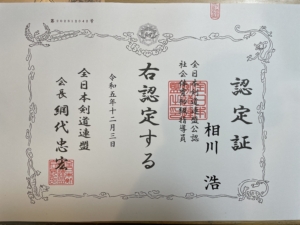 認定証
相川 浩
全日本剣道連盟公認
社会体育初級指導員
右認定する
令和五年十二月三日
全日本剣道連盟
会長 網代忠宏